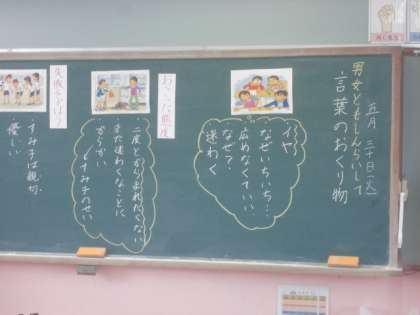 五月 三十日(火)
男女ともしんらいして
言葉のおくり物
イヤ
なぜいちいち…
広めなくていい
なぜ？
迷わく
おこった態度
二度とからまれたくない
また迷わくなことに
からかい
すみ子のせい
・すみ子は親切
優しい